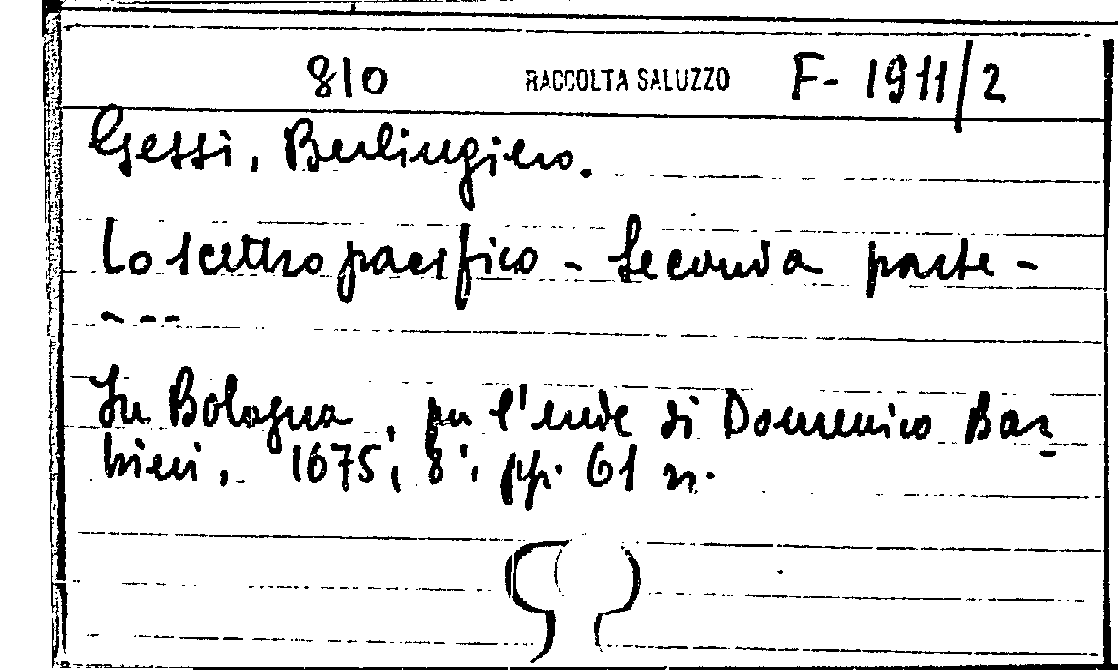 810 RACCOLTA SALUZZO F-1911/2
Gessi, Berlingiero.
Lo scettro pacifico - Seconda parte -
- - -
In Bologna, per l'erede di Domenico Bar-
bieri, 1675, 8°, pp. 61 n.